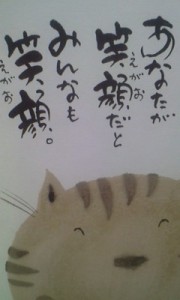 あなたが
笑顔だと
えがお
みんなも
笑顔。
えがお